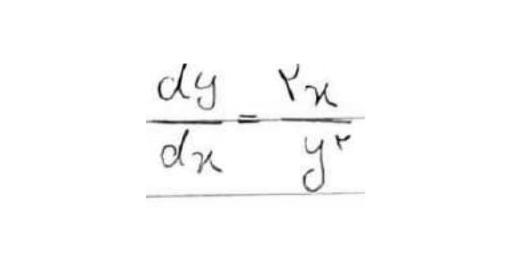 dy/dx = ۲x/y^۲